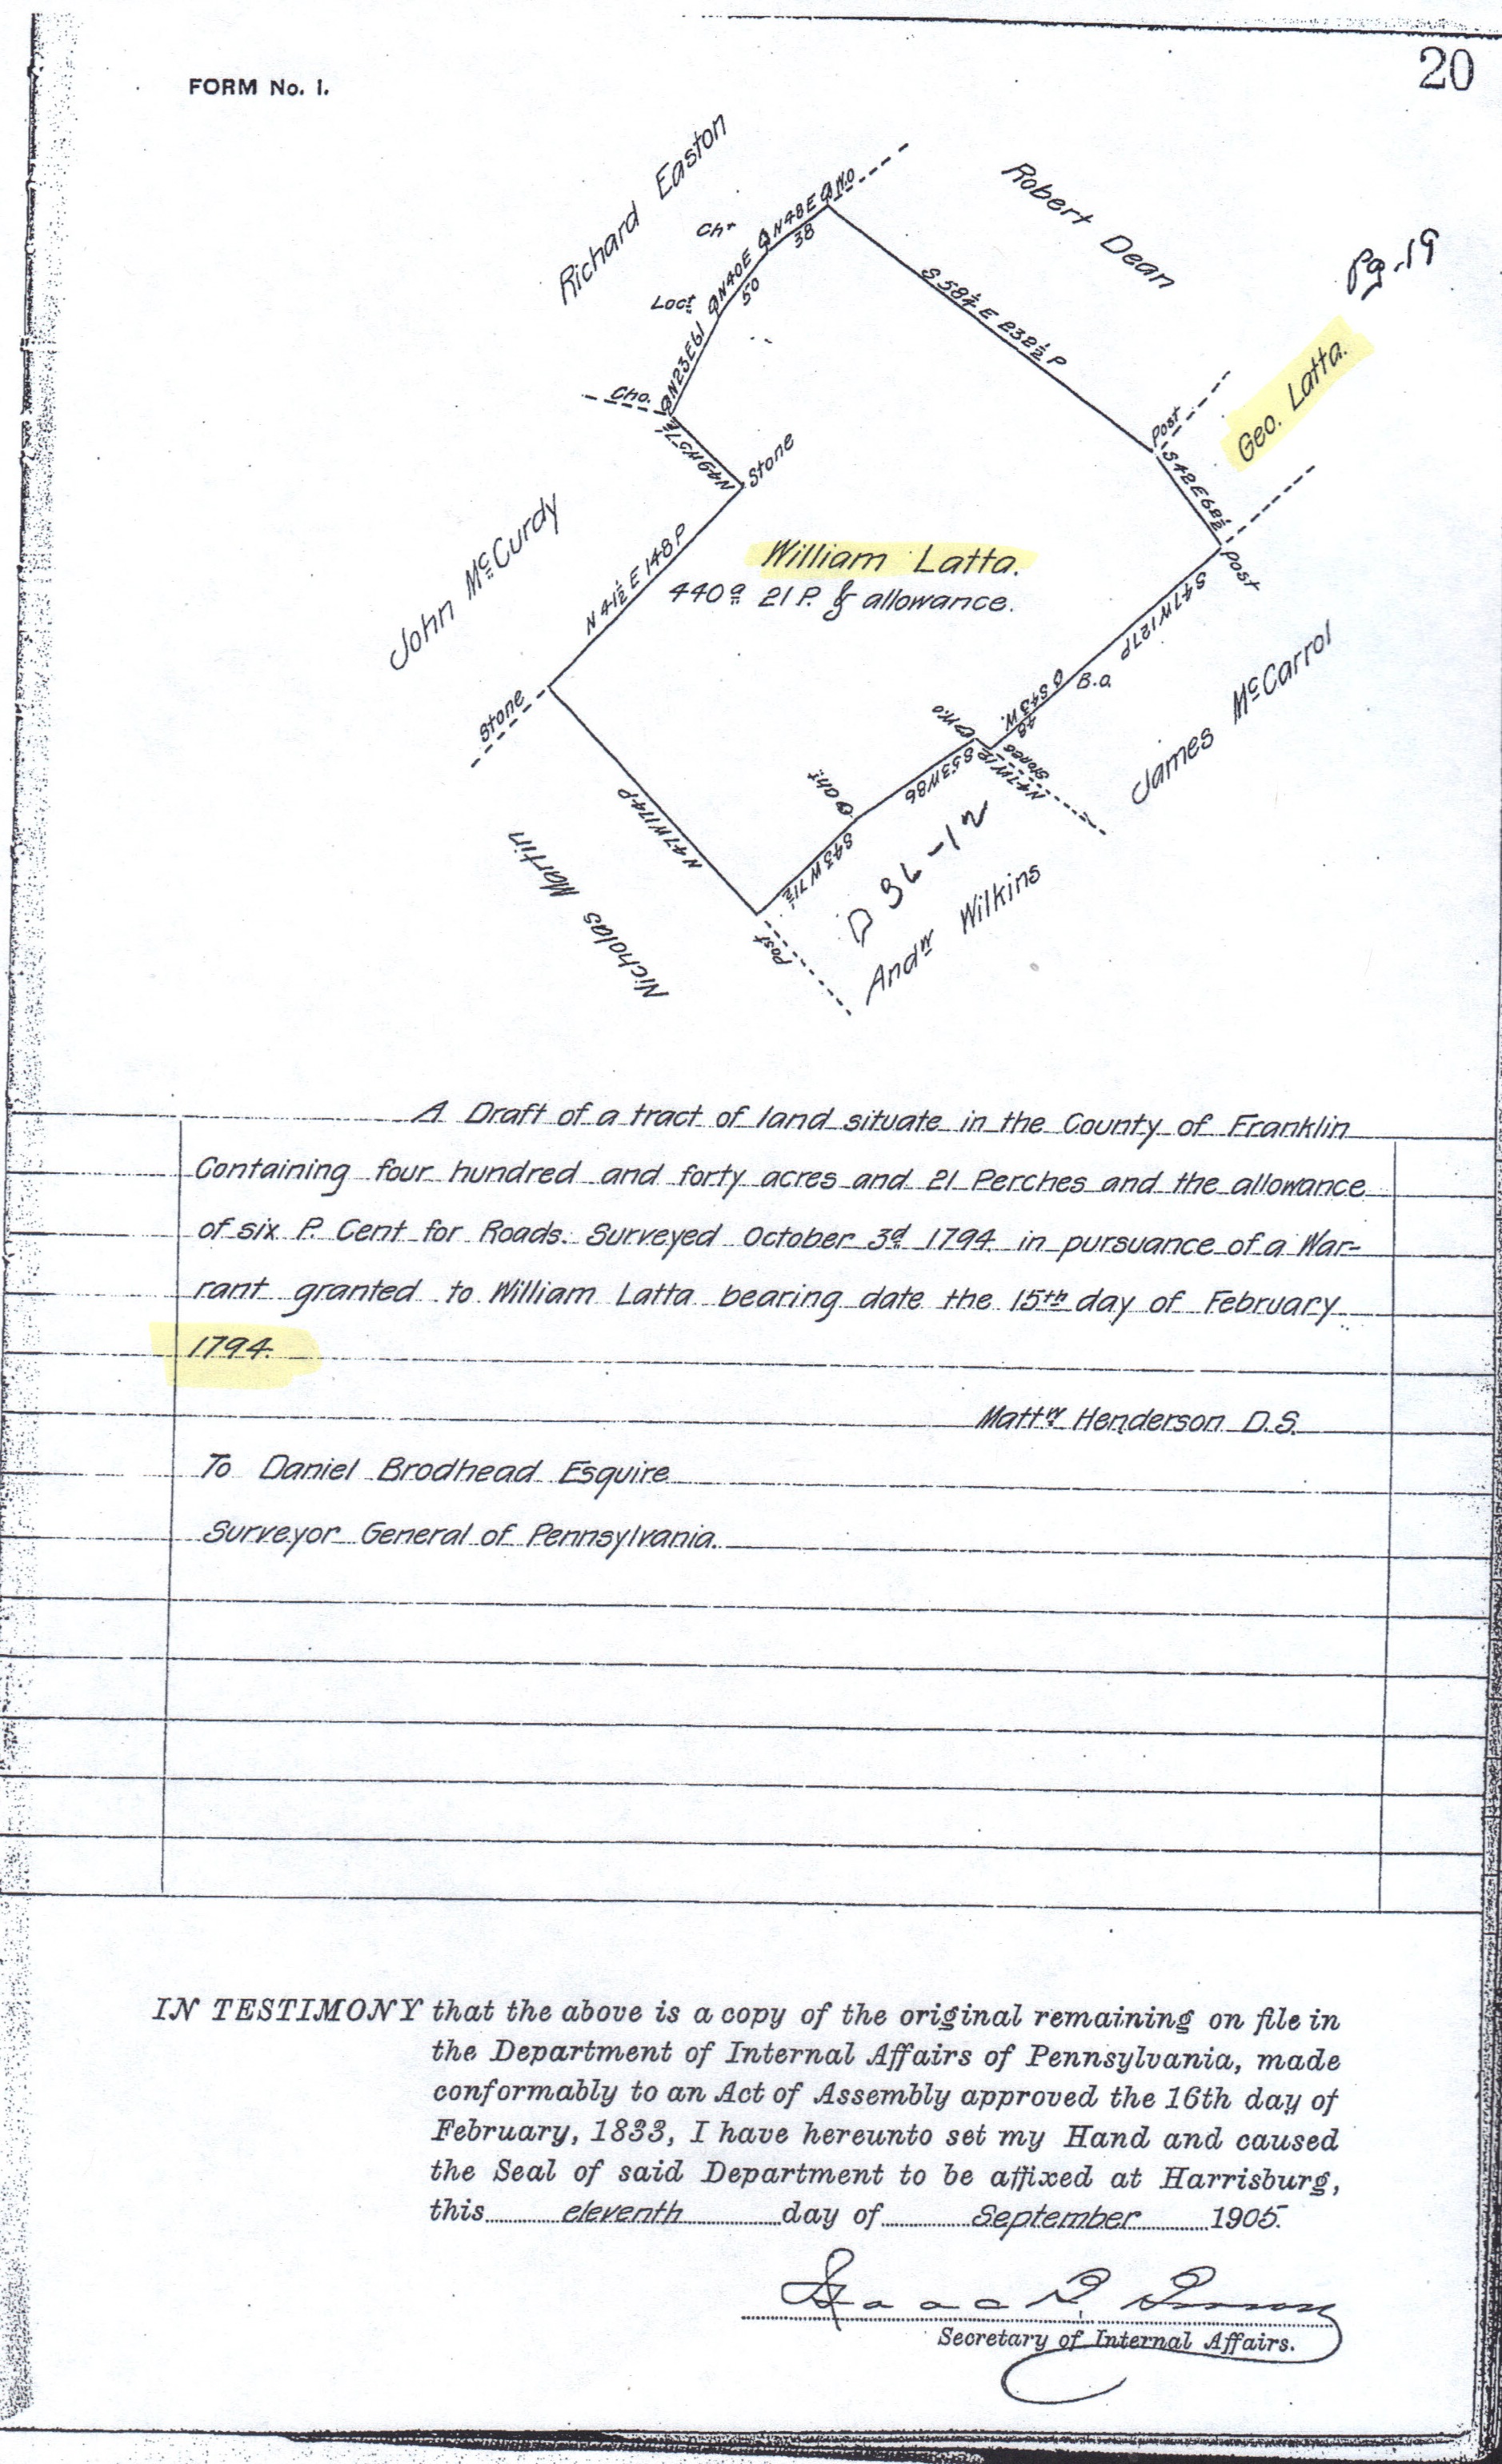 20
FORM No. 1.
Richard Easton
Robert Dean
Pg. 19
Geo. Latta.
Chr
Loct
Cho.
W.o
N48E
38
N40E
50
N23E61
N49W57½
Stone
S 58¼ E 232½ P
Post
S42E68½
Post
John McCurdy
N 41½ E 148 P
William Latta.
440a 21 P. & allowance.
S47W127P
B.o.
S43W.
48
Stones
N47W12
W.o
James McCarrol
Stone
S53W86
Oht.
S43W71½
N47W174P
Post
Nicholas Martin
D 36-12
Andw Wilkins
A Draft of a tract of land situate in the County of Franklin
Containing four hundred and forty acres and 21 Perches and the allowance
of six P. Cent for Roads. Surveyed October 3d 1794 in pursuance of a War-
rant granted to William Latta bearing date the 15th day of February
1794.
Mattw Henderson D.S.
To Daniel Brodhead Esquire
Surveyor General of Pennsylvania.
IN TESTIMONY that the above is a copy of the original remaining on file in
the Department of Internal Affairs of Pennsylvania, made
conformably to an Act of Assembly approved the 16th day of
February, 1833, I have hereunto set my Hand and caused
the Seal of said Department to be affixed at Harrisburg,
this eleventh day of September 1905.
Isaac B. Brown
Secretary of Internal Affairs.